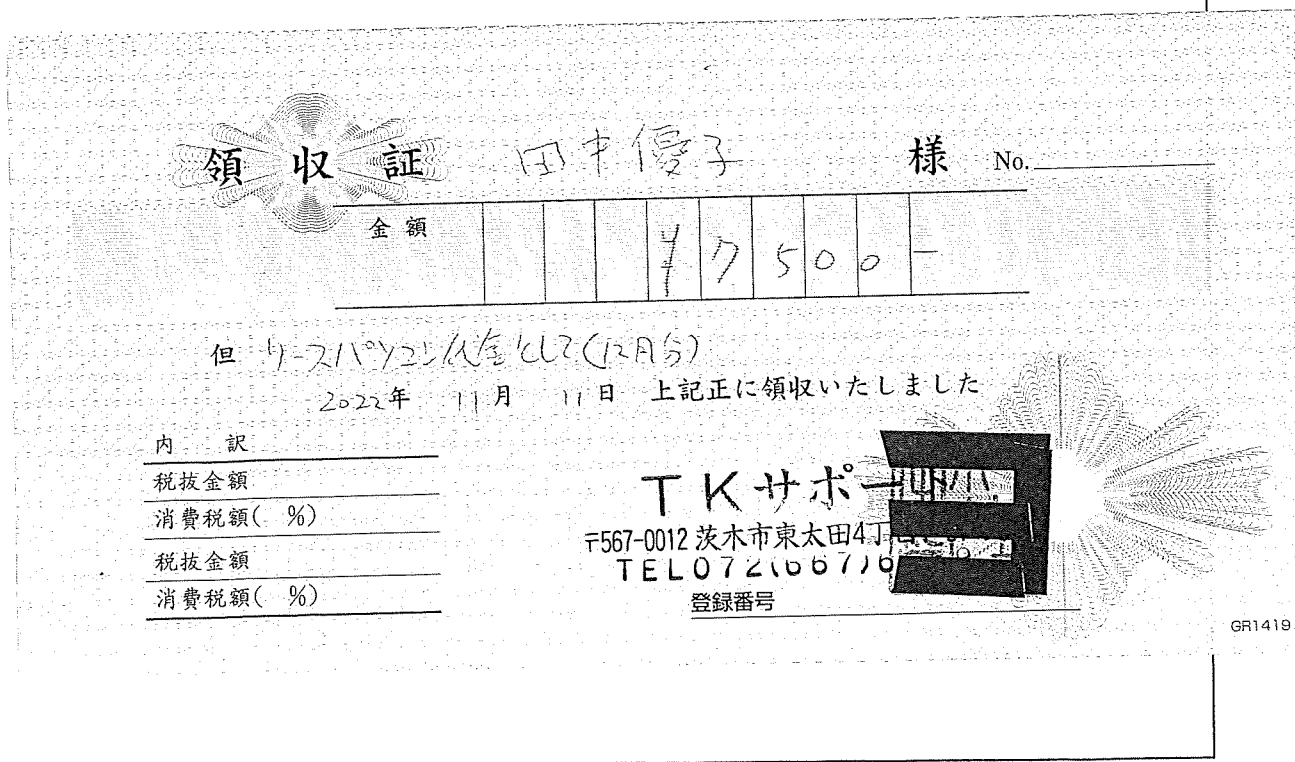 領収証 田中優子 様 No.
金額 ¥7500-
但 リースパソコン代金として(12月分)
2022年 11月 11日 上記正に領収いたしました
内 訳
税抜金額
消費税額( %)
税抜金額
消費税額( %)
TKサポー
〒567-0012 茨木市東太田4丁
TEL072(667)6
登録番号
GR1419